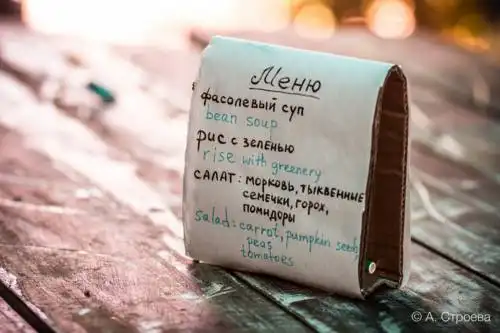 Меню
фасолевый суп
bean soup
рис с зеленью
rise with greenery
САЛАТ: морковь, тыквенные
семечки, горох,
помидоры
Salad: carrot, pumpkin seeds,
peas
tomatoes
© А. Строева